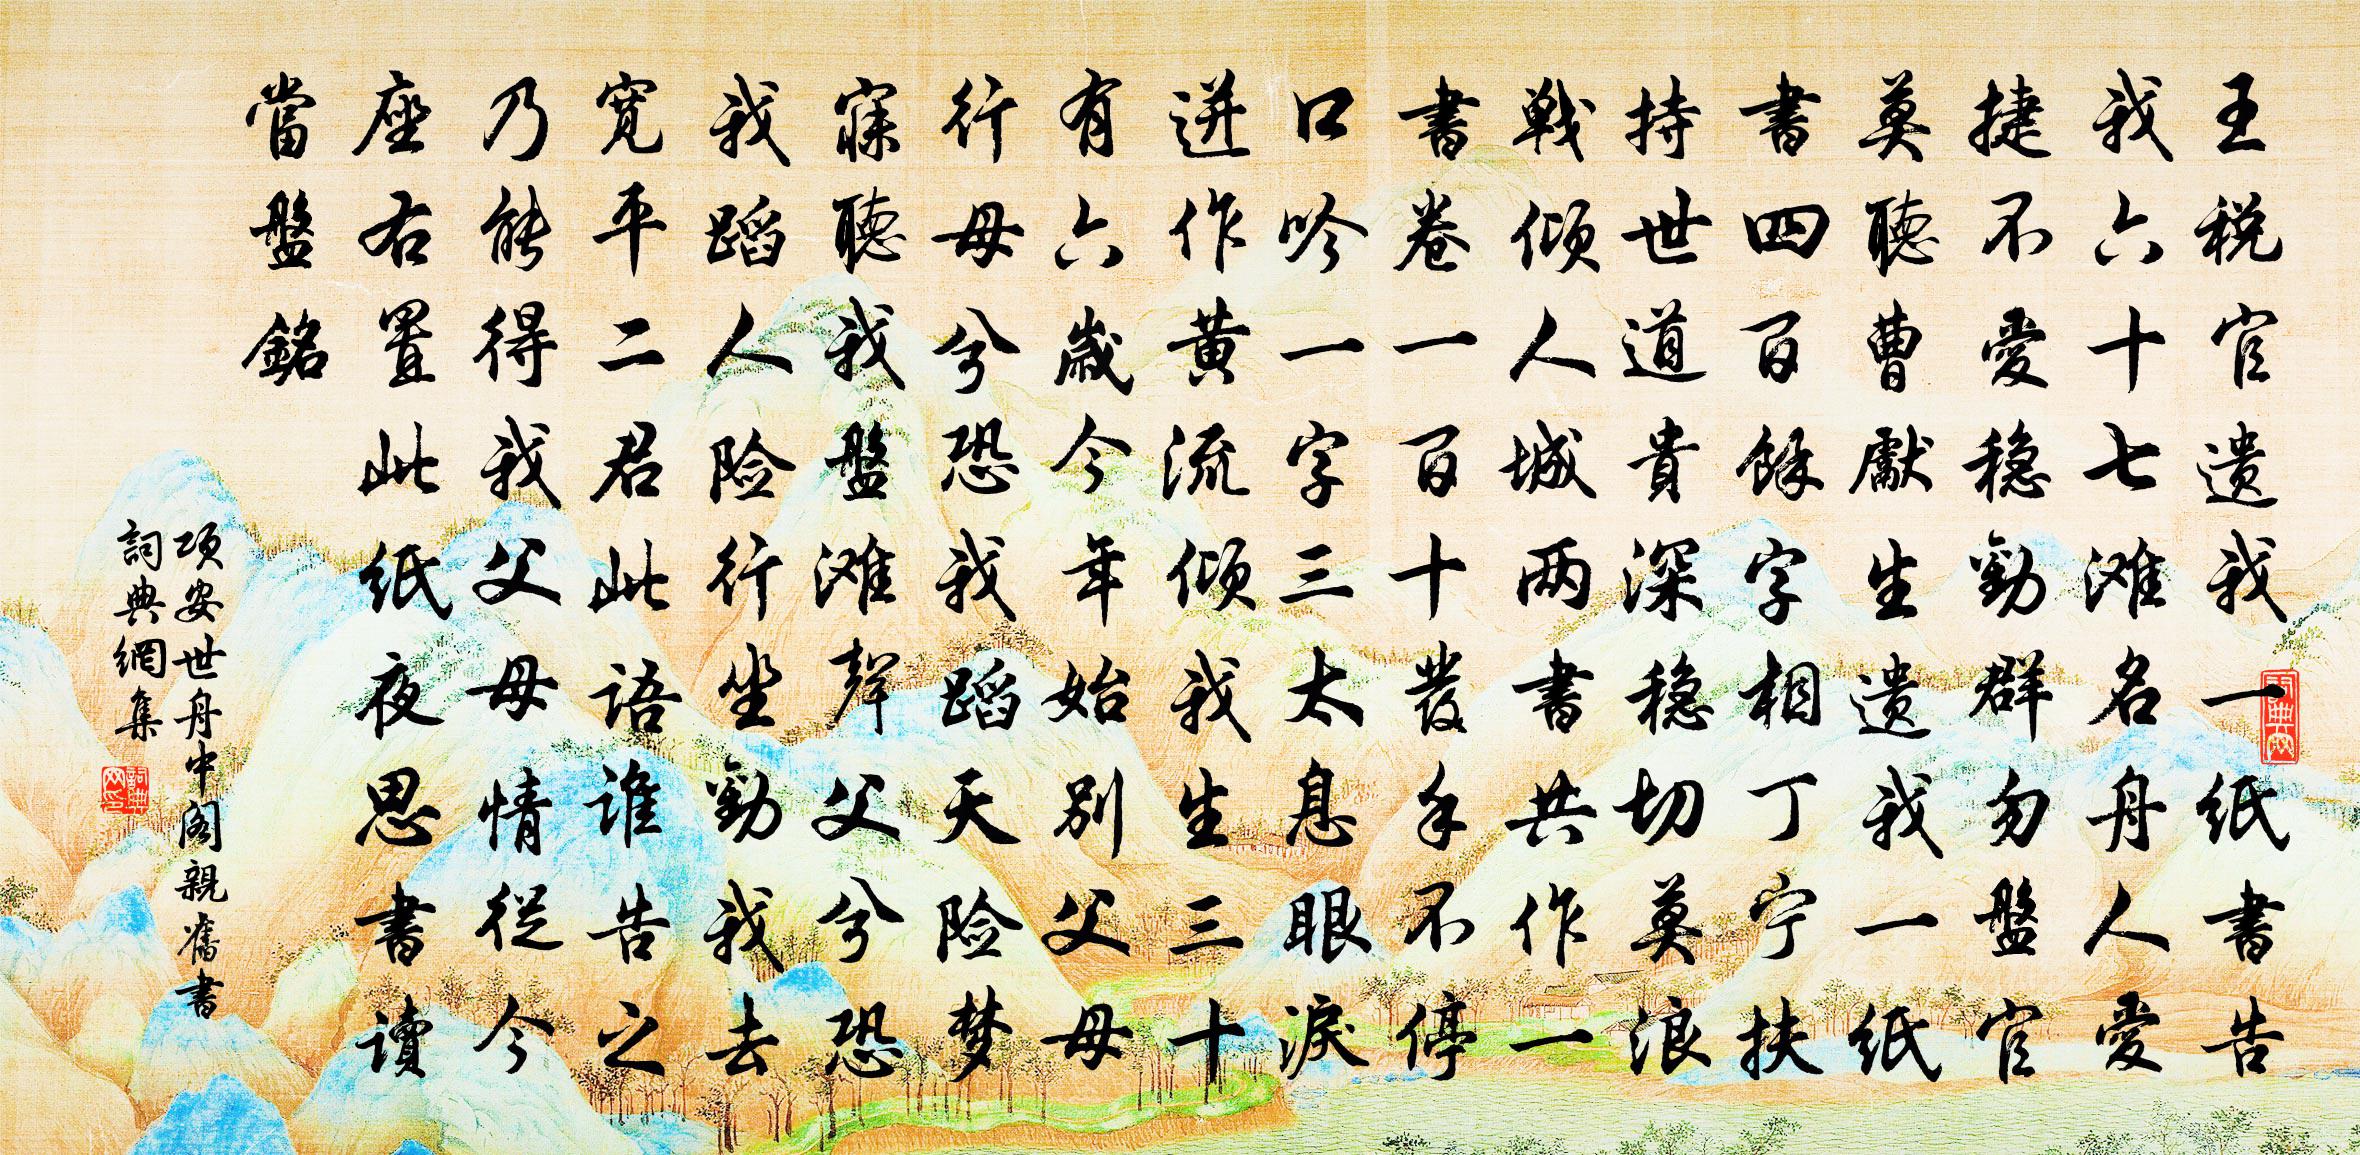 王税官遗我一纸書告
我六十七滩名舟人愛
捷不愛穏勸群勿盤官
莫聽曹獻生遗我一紙
書四百餘字相丁宁扶
持世道貴深穏切莫浪
戦倾人城两書共作一
書卷一百十發手不停
口吟一字三太息眼淚
迸作黄流倾我生三十
有六歳今年始别父母
行母兮恐我蹈天险梦
寐聽我盤滩聲父兮恐
我蹈人险行坐勸我去
寛平二君此语谁告之
乃能得我父母情從今
座右置此紙夜思書讀
當盤銘
项安世舟中阁親舊書
詞典網集